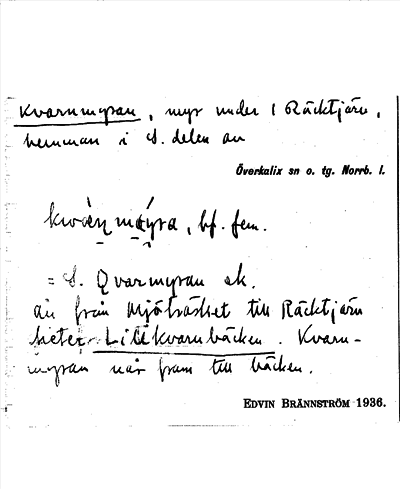 Kvarnmyran, myr under 1 Räcktjärv,
hemman i S. delen av
Överkalix sn o. tg. Norrb. l.
bf. fem.
= S. Qvarmyran ek.
ån från Mjöträsket till Räcktjärv
heter Lillkvarnbäcken. Kvarn-
myran når fram till bäcken.
EDVIN BRÄNNSTRÖM 1936.